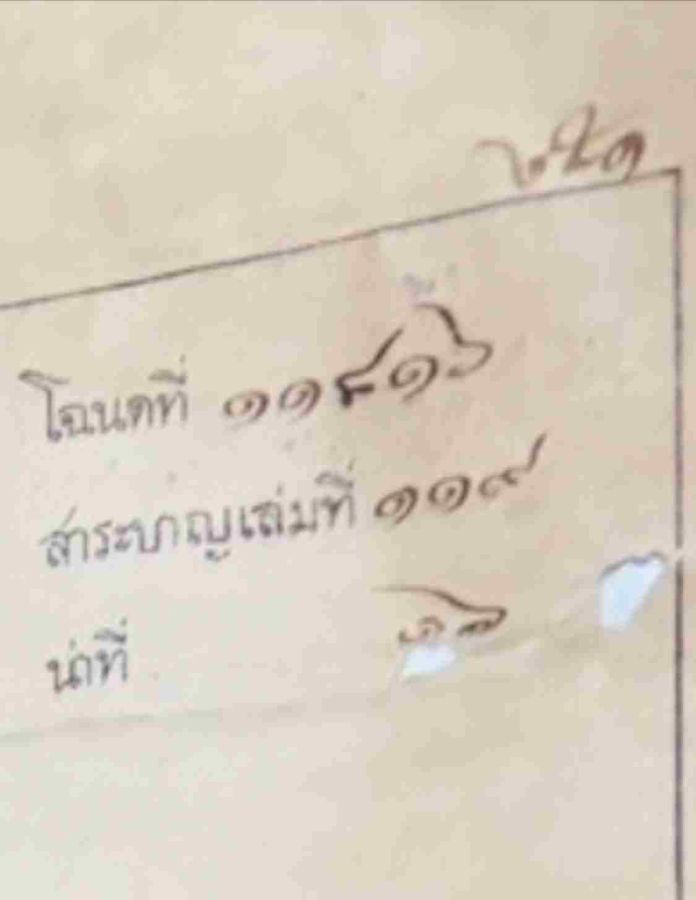 โฉนดที่ ๑๑๘๑๖
สาระบาญเล่มที่ ๑๑๙
น่าที่ ๑๖